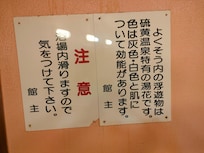 よくそう内の浮遊物は
硫黄温泉特有の湯花です。
色は灰色・白色と肌に
ついて効能があります。
館主
注意
浴場内滑りますので
気をつけて下さい。
館主